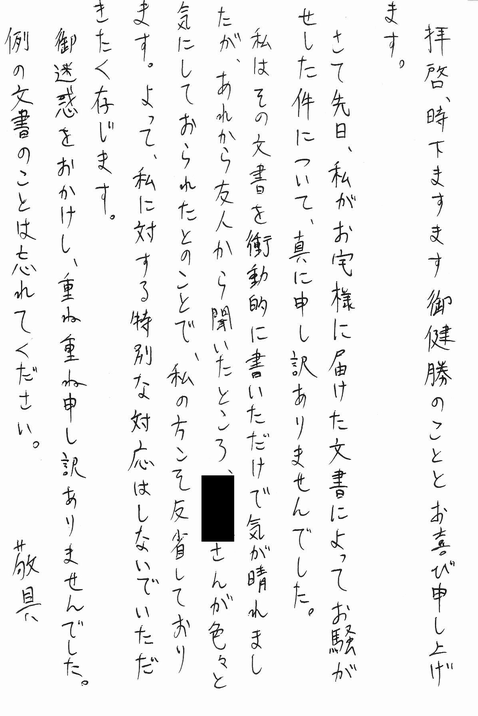 拝啓、時下ますます御健勝のこととお喜び申し上げ
ます。
さて先日、私がお宅様に届けた文書によってお騒が
せした件について、真に申し訳ありませんでした。
私はその文書を衝動的に書いただけで気が晴れまし
たが、あれから友人から聞いたところ、さんが色々と
気にしておられたとのことで、私の方こそ反省しており
ます。よって、私に対する特別な対応はしないでいただ
きたく存じます。
御迷惑をおかけし、重ね重ね申し訳ありませんでした。
例の文書のことは忘れてください。 敬具